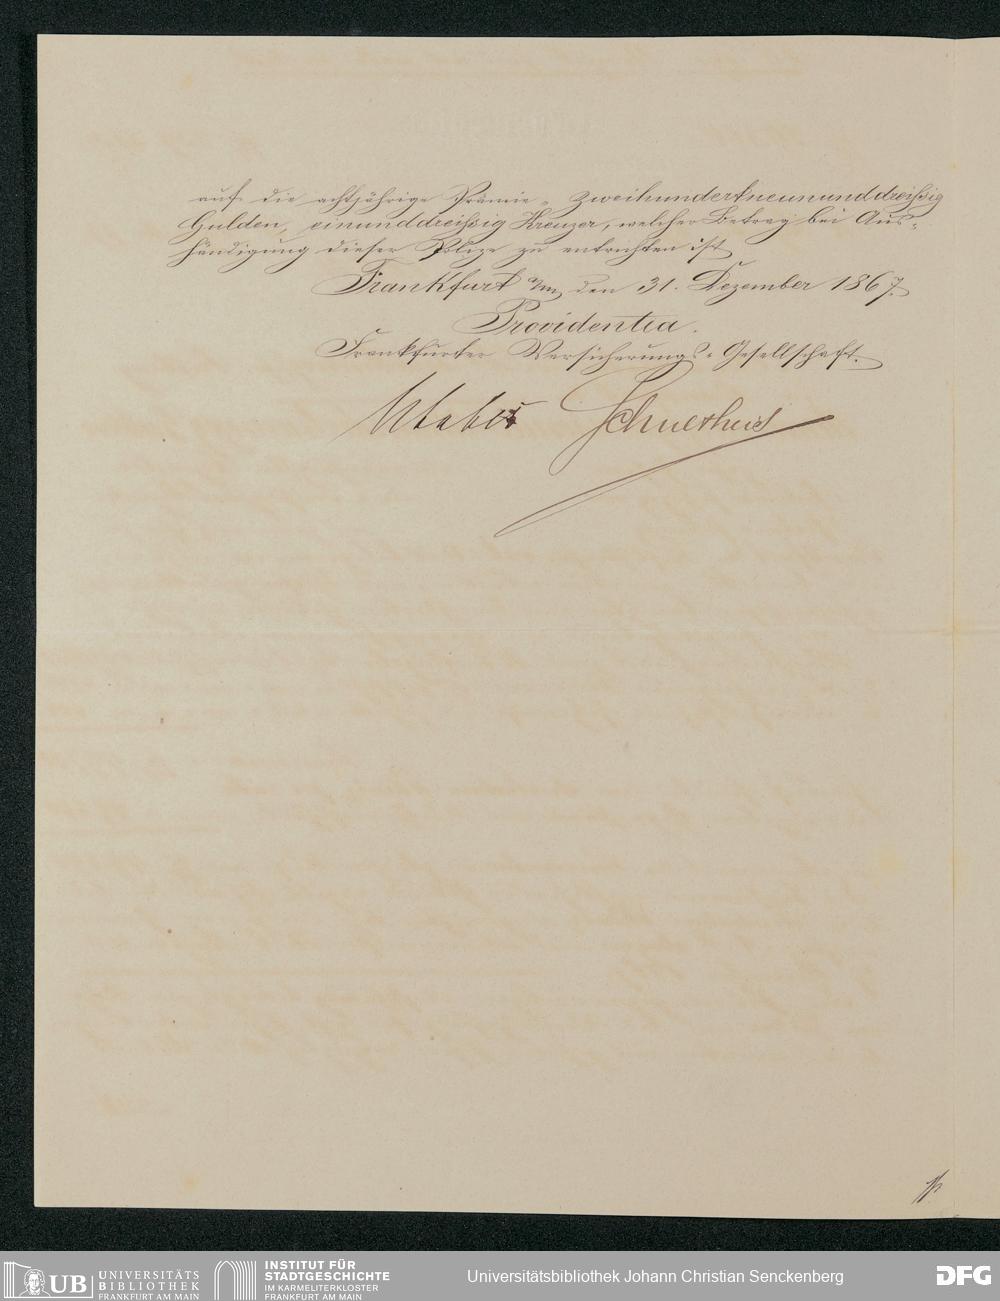 auf die achtjährige Prämie - zweihundertneununddreißig
Gulden, einunddreißig Kreuzer, welcher Betrag bei Aus-
händigung dieser Police zu entrichten ist
Frankfurt a/m, den 31. Dezember 1867.
Providentia.
Frankfurter Versicherungs-Gesellschaft.
UB UNIVERSITÄTS
BIBLIOTHEK
FRANKFURT AM MAIN
INSTITUT FÜR
STADTGESCHICHTE
IM KARMELITERKLOSTER
FRANKFURT AM MAIN
Universitätsbibliothek Johann Christian Senckenberg
DFG